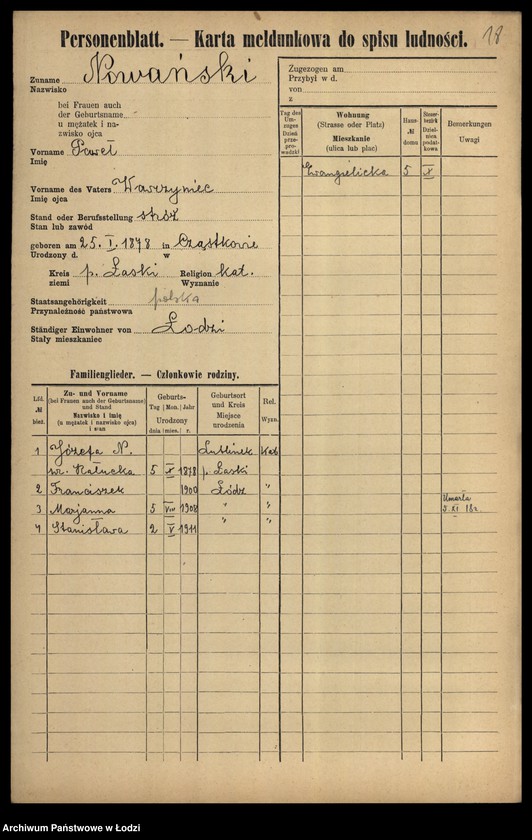 Personenblatt. — Karta meldunkowa do spisu ludności.
18
Zuname Nowański
Nazwisko
bei Frauen auch
der Geburtsname
u mężatek i na-
zwisko ojca
Vorname Paweł
Imię
Vorname des Vaters Wawrzyniec
Imię ojca
Stand oder Berufsstellung stróż
Stan lub zawód
geboren am 25. I. 1878 in Cząstkowie
Urodzony d. w
Kreis p. Łaski Religion kat.
ziemi Wyznanie
Staatsangehörigkeit polska
Przynależność państwowa
Ständiger Einwohner von Łodzi
Stały mieszkaniec
Zugezogen am
Przybył w d.
von
z
Tag des Um-zuges Dzień prze-prowadzki
Wohnung (Strasse oder Platz) Mieszkanie (ulica lub plac)
Haus- № domu
Steuer-bezirk Dziel-nica podat-kowa
Bemerkungen Uwagi
Ewangielicka 5 X
Familienglieder. — Członkowie rodziny.
Lfd. № bież.
Zu- und Vorname
(bei Frauen auch der Geburtsname)
und Stand
Nazwisko i imię
(u mężatek i nazwisko ojca)
i stan
Geburts-
Tag Mon. Jahr
Urodzony
dnia mies. r.
Geburtsort
und Kreis
Miejsce
urodzenia
Rel.
Wyzn.
1 Józefa N. Lublinek kat
5 X 1878 p. Łaski
2 Franciszek 1900 Łódź "
3 Marjanna 5 VIII 1908 " " Umarła 5. XI 18r.
4 Stanisława 2 V 1911 " "
Archiwum Państwowe w Łodzi